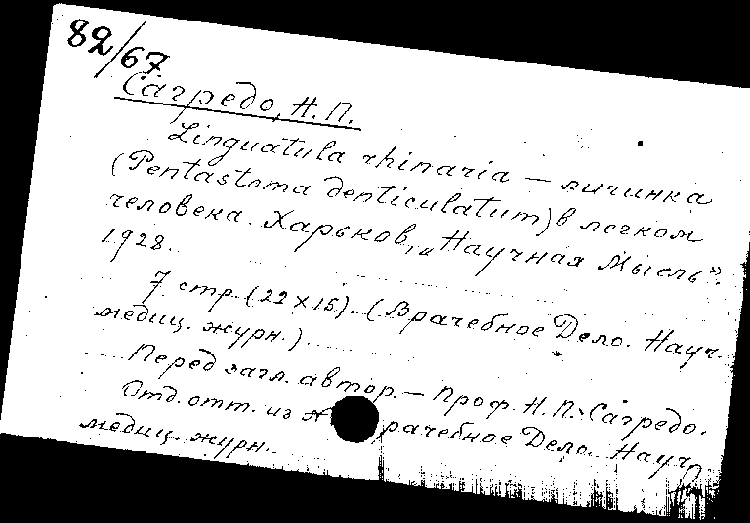 82/67
Сагредо, Н. П.
Linguatula rhinaria — личинка
(Pentastoma denticulatum) в легком
человека. Харьков, „Научная Мысль".
1928.
7 стр. (22×15). (Врачебное Дело. Науч.
медиц. журн.)
Перед загл. автор. — Проф. Н. П. Сагредо.
Отд. отт. из рачебное Дело. Науч.
медиц. журн.